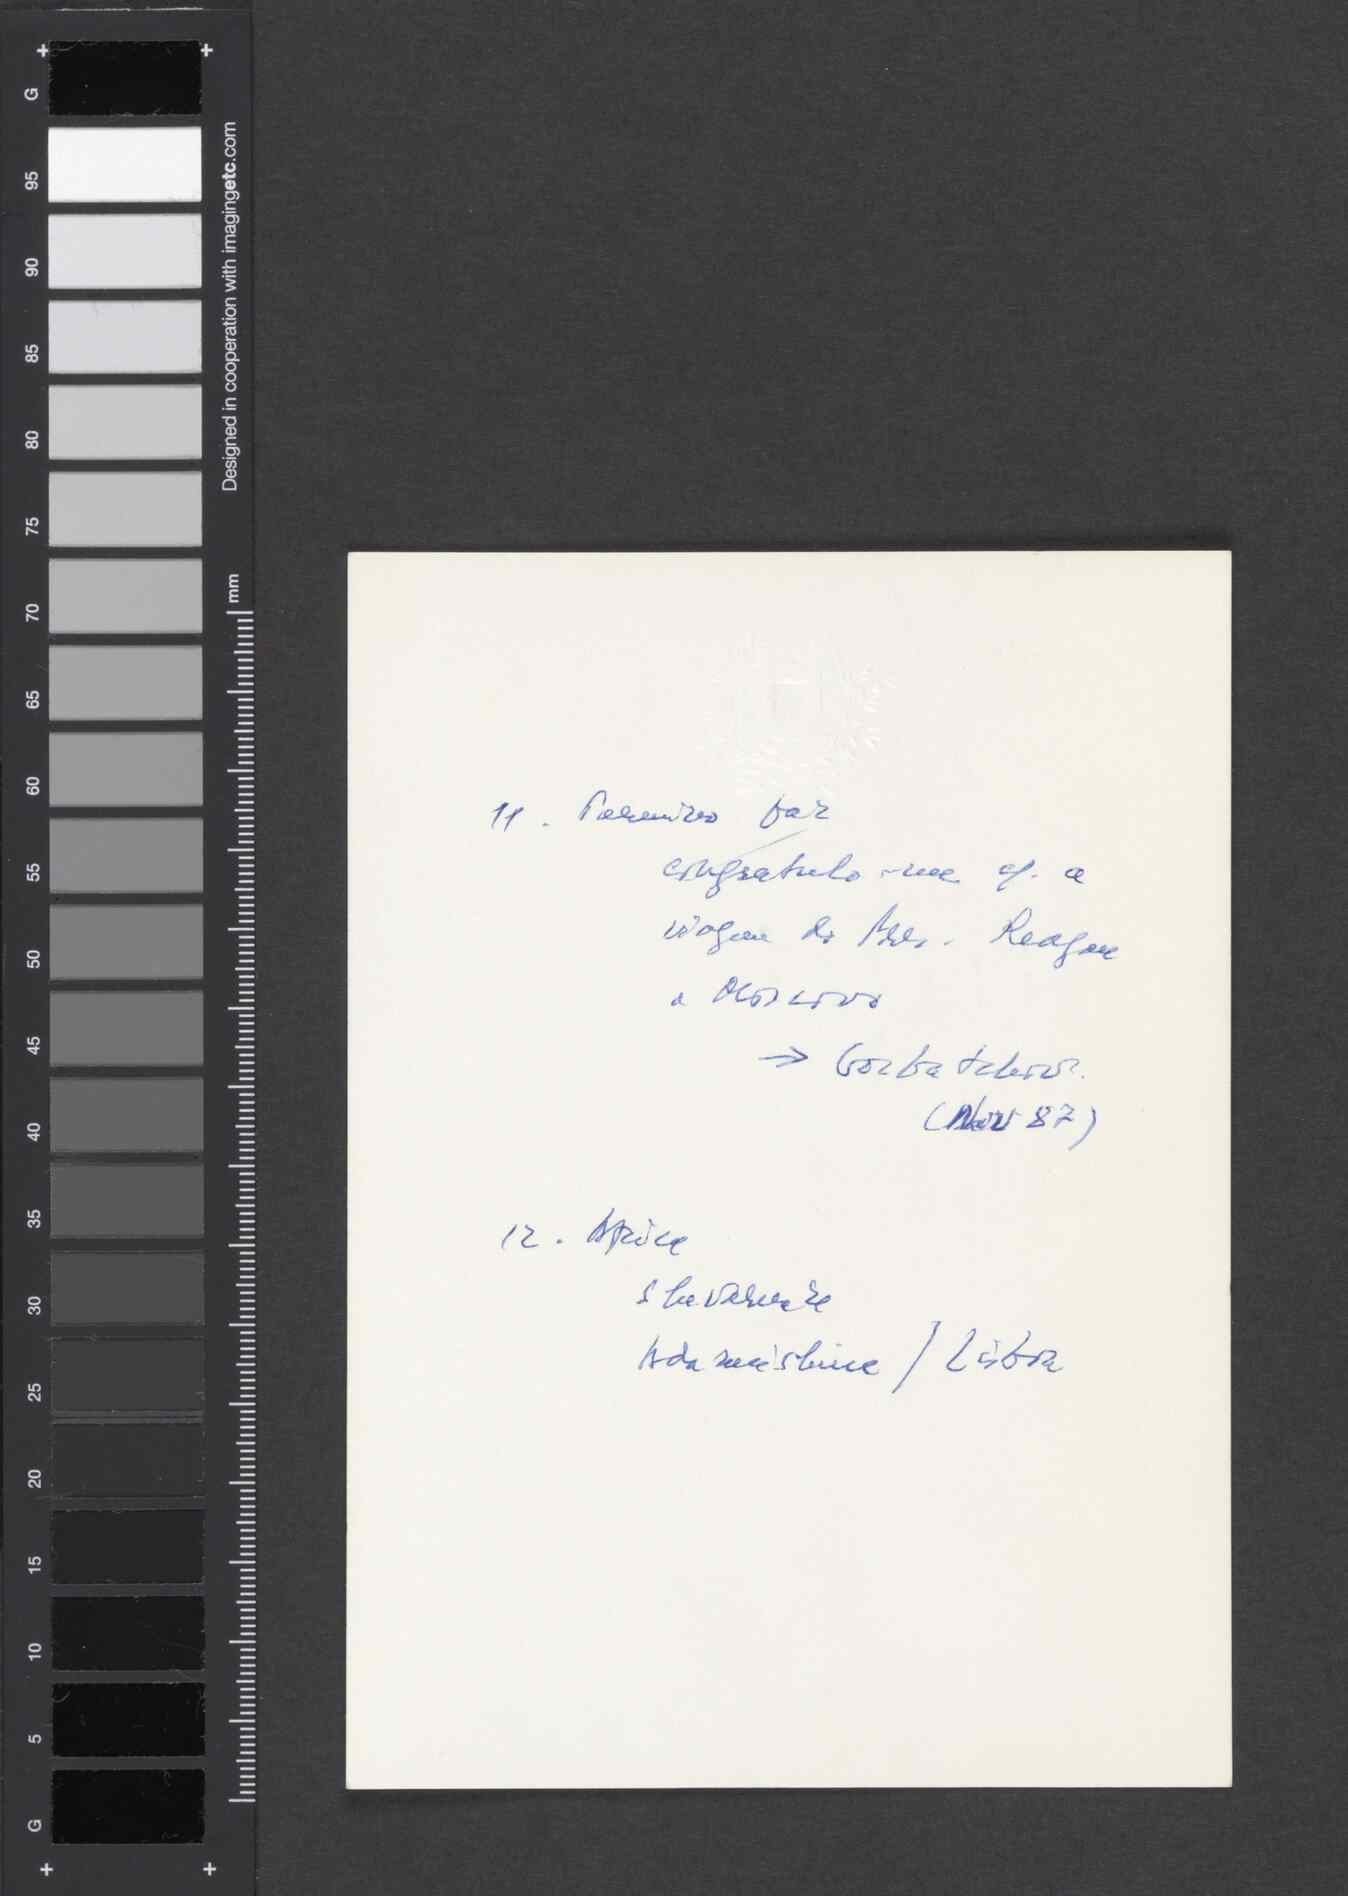 G
95
90
85
80
75
70
65
60
55
50
45
40
35
30
25
20
15
10
5
G
Designed in cooperation with imagingetc.com
mm
11. Paz
congratulo-me c/. a
viagem do Pres. Reagan
a Moscovo
→ Gorbatchov.
(Nov 87)
12. Africa
Shevarnaze
Adamishine / Lisboa